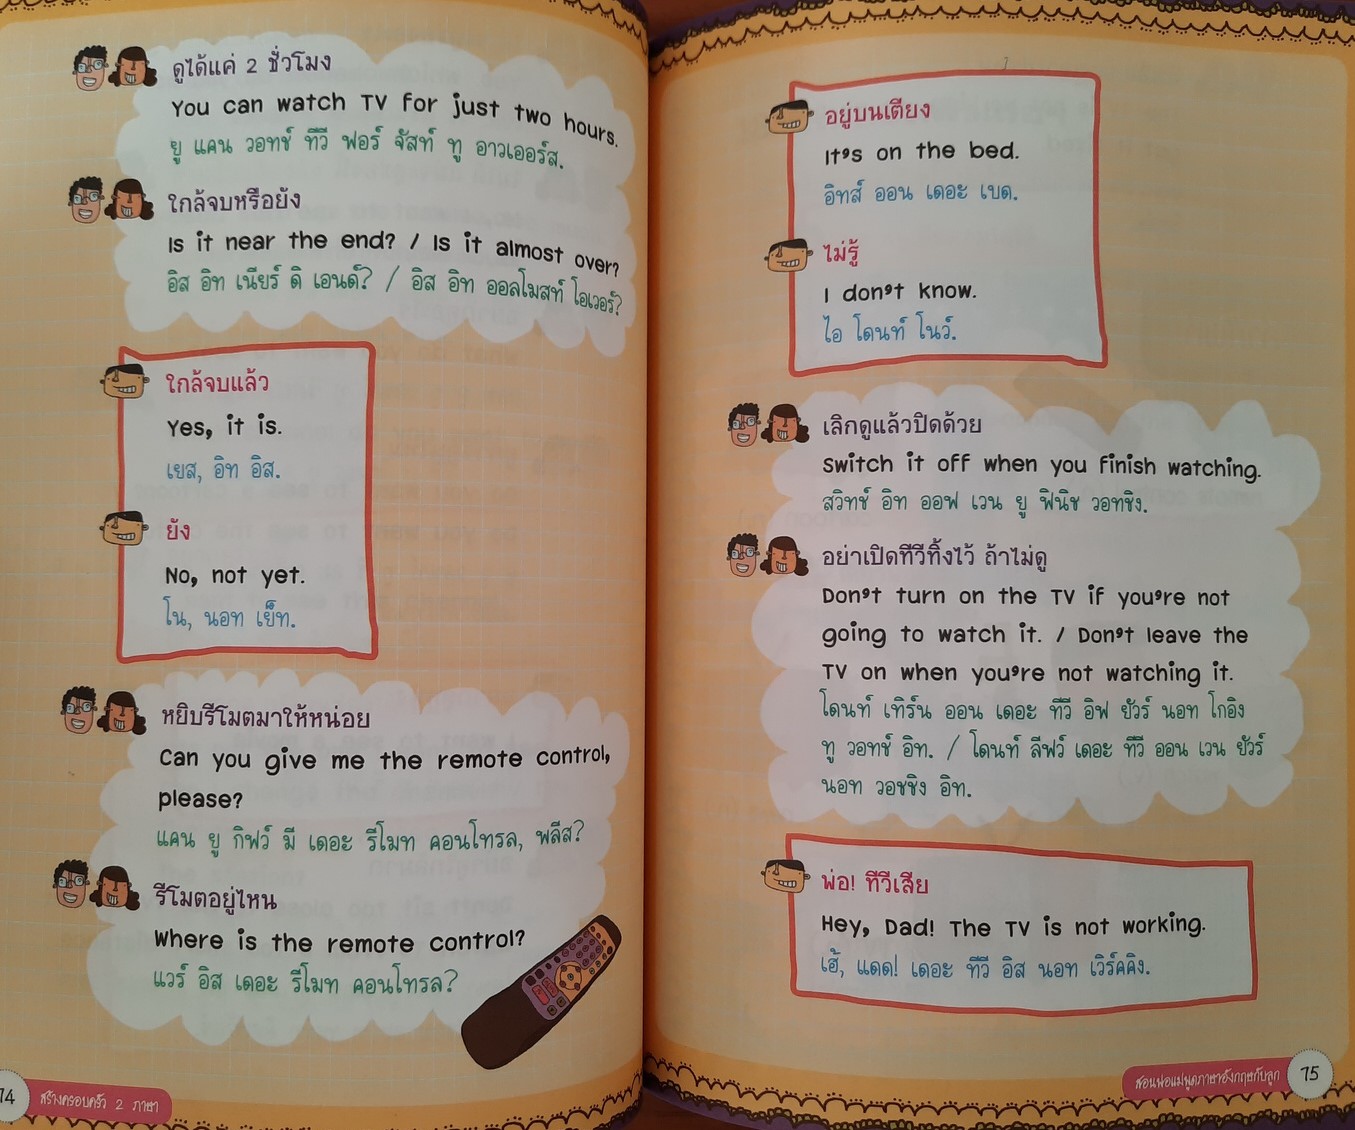 ดูได้แค่ 2 ชั่วโมง
You can watch TV for just two hours.
ยู แคน วอทช์ ทีวี ฟอร์ จัสท์ ทู อาวเออร์ส.
ใกล้จบหรือยัง
Is it near the end? / Is it almost over?
อิส อิท เนียร์ ดิ เอนด์? / อิส อิท ออลโมสท์ โอเวอร์?
ใกล้จบแล้ว
Yes, it is.
เยส, อิท อิส.
ยัง
No, not yet.
โน, นอท เย็ท.
หยิบรีโมตมาให้หน่อย
Can you give me the remote control,
please?
แคน ยู กิฟว์ มี เดอะ รีโมท คอนโทรล, พลีส?
รีโมตอยู่ไหน
Where is the remote control?
แวร์ อิส เดอะ รีโมท คอนโทรล?
74 สร้างครอบครัว 2 ภาษา
อยู่บนเตียง
It's on the bed.
อิทส์ ออน เดอะ เบด.
ไม่รู้
I don't know.
ไอ โดนท์ โนว์.
เลิกดูแล้วปิดด้วย
Switch it off when you finish watching.
สวิทช์ อิท ออฟ เวน ยู ฟินิช วอทชิง.
อย่าเปิดทีวีทิ้งไว้ ถ้าไม่ดู
Don't turn on the TV if you're not
going to watch it. / Don't leave the
TV on when you're not watching it.
โดนท์ เทิร์น ออน เดอะ ทีวี อิฟ ยัวร์ นอท โกอิง
ทู วอทช์ อิท. / โดนท์ ลีฟว์ เดอะ ทีวี ออน เวน ยัวร์
นอท วอชชิง อิท.
พ่อ! ทีวีเสีย
Hey, Dad! The TV is not working.
เฮ้, แดด! เดอะ ทีวี อิส นอท เวิร์คคิง.
สอนพ่อแม่พูดภาษาอังกฤษกับลูก 75